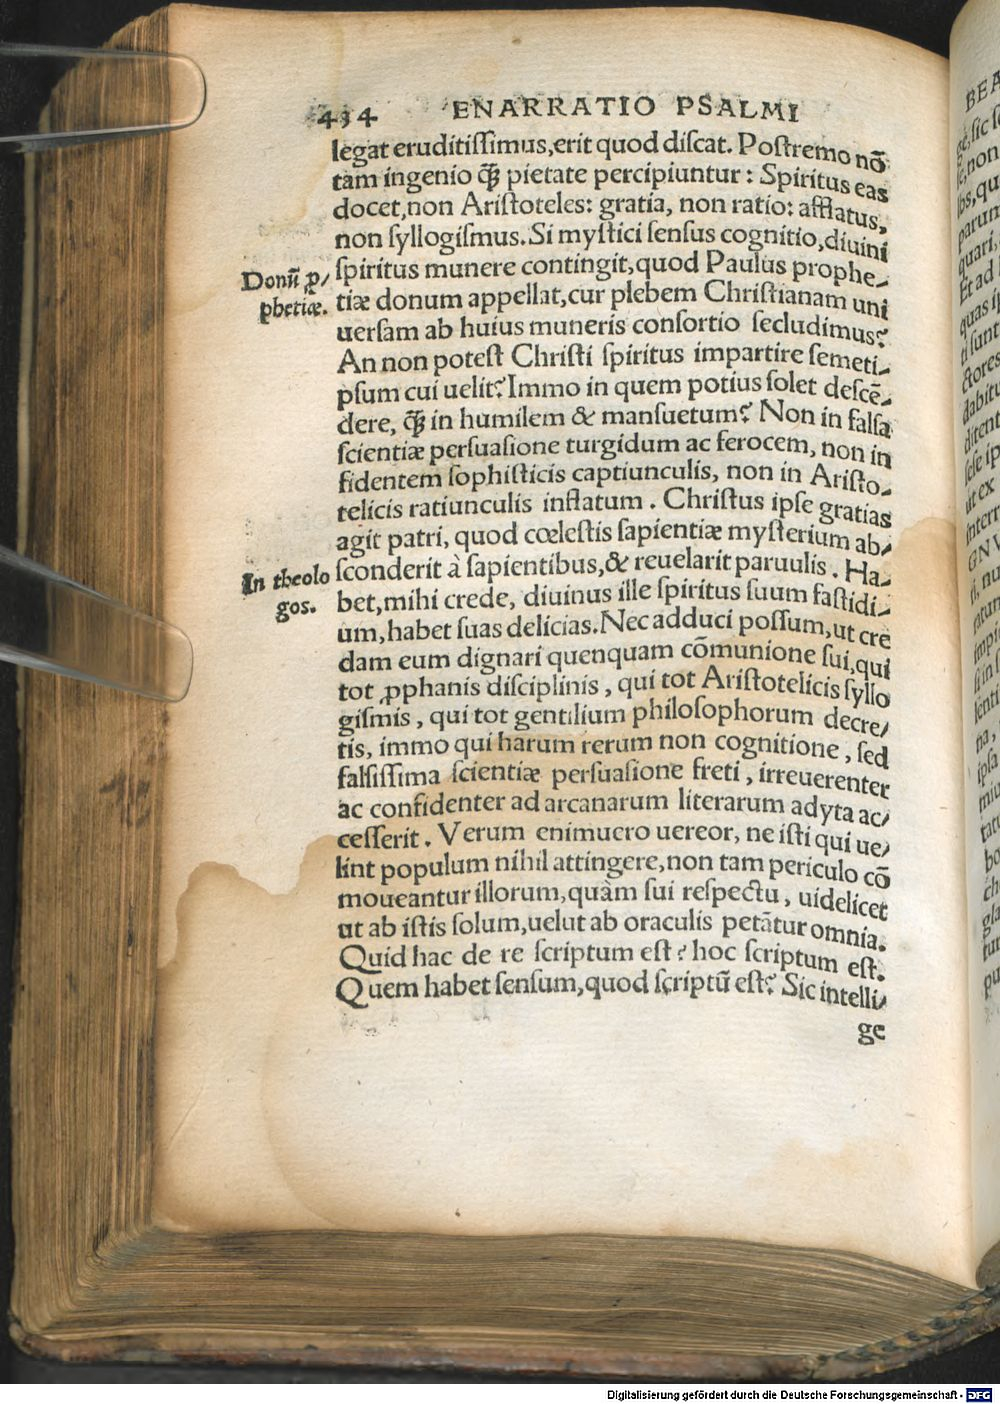 434 ENARRATIO PSALMI
legat eruditiſſimus,erit quod diſcat. Poſtremo nõ
tam ingenio q̃ȝ pietate percipiuntur : Spiritus eas
docet,non Ariſtoteles: gratia, non ratio: afflatus,
non ſyllogiſmus. Si myſtici ſenſus cognitio,diuini
Donũ ꝓ/
ſpiritus munere contingit,quod Paulus prophe-
phetiæ.
tiæ donum appellat,cur plebem Chriſtianam uni
uerſam ab huius muneris conſortio ſecludimus?
An non poteſt Chriſti ſpiritus impartire ſemeti-
pſum cui uelit? Immo in quem potius ſolet deſcẽ-
dere, q̃ȝ in humilem & manſuetum? Non in falſa
ſcientiæ perſuaſione turgidum ac ferocem, non in
fidentem ſophiſticis captiunculis, non in Ariſto-
telicis ratiunculis inflatum . Chriſtus ipſe gratias
agit patri, quod cœleſtis ſapientiæ myſterium ab/
In theolo
ſconderit à ſapientibus,& reuelarit paruulis . Ha-
gos.
bet,mihi crede, diuinus ille ſpiritus ſuum faſtidi-
um,habet ſuas delicias. Nec adduci poſſum,ut cre
dam eum dignari quenquam cõmunione ſui,qui
tot ꝓphanis diſciplinis , qui tot Ariſtotelicis ſyllo
giſmis , qui tot gentilium philoſophorum decre/
tis, immo qui harum rerum non cognitione , ſed
falſiſſima ſcientiæ perſuaſione freti , irreuerenter
ac confidenter ad arcanarum literarum adyta ac/
ceſſerit . Verum enimuero uereor, ne iſti qui ue/
lint populum nihil attingere,non tam periculo cõ
moueantur illorum,quàm ſui reſpectu , uidelicet
ut ab iſtis ſolum,uelut ab oraculis petãtur omnia.
Quid hac de re ſcriptum eſt? hoc ſcriptum eſt.
Quem habet ſenſum,quod ſcriptũ eſt? Sic intelli/
ge
BEA
Digitalisierung gefördert durch die Deutsche Forschungsgemeinschaft - DFG